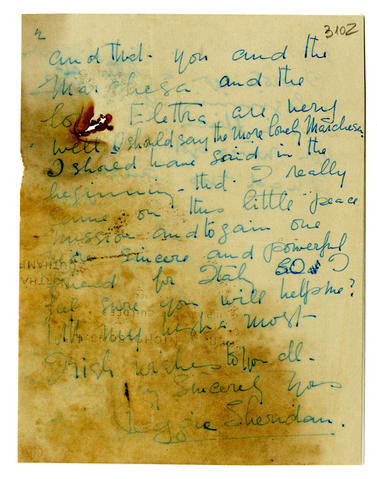 2
3102
and that you and the
Marchesa and the
Elettra are very
well I should say the more lovely Marchesa.
I should have said in the
beginning - that I really
came on this little peace
mission and to gain one
more sincere and powerful
friend for Italy so I
feel sure you will help me?
With my most
Irish wishes to you all -
Sincerely Yours
Sheridan.